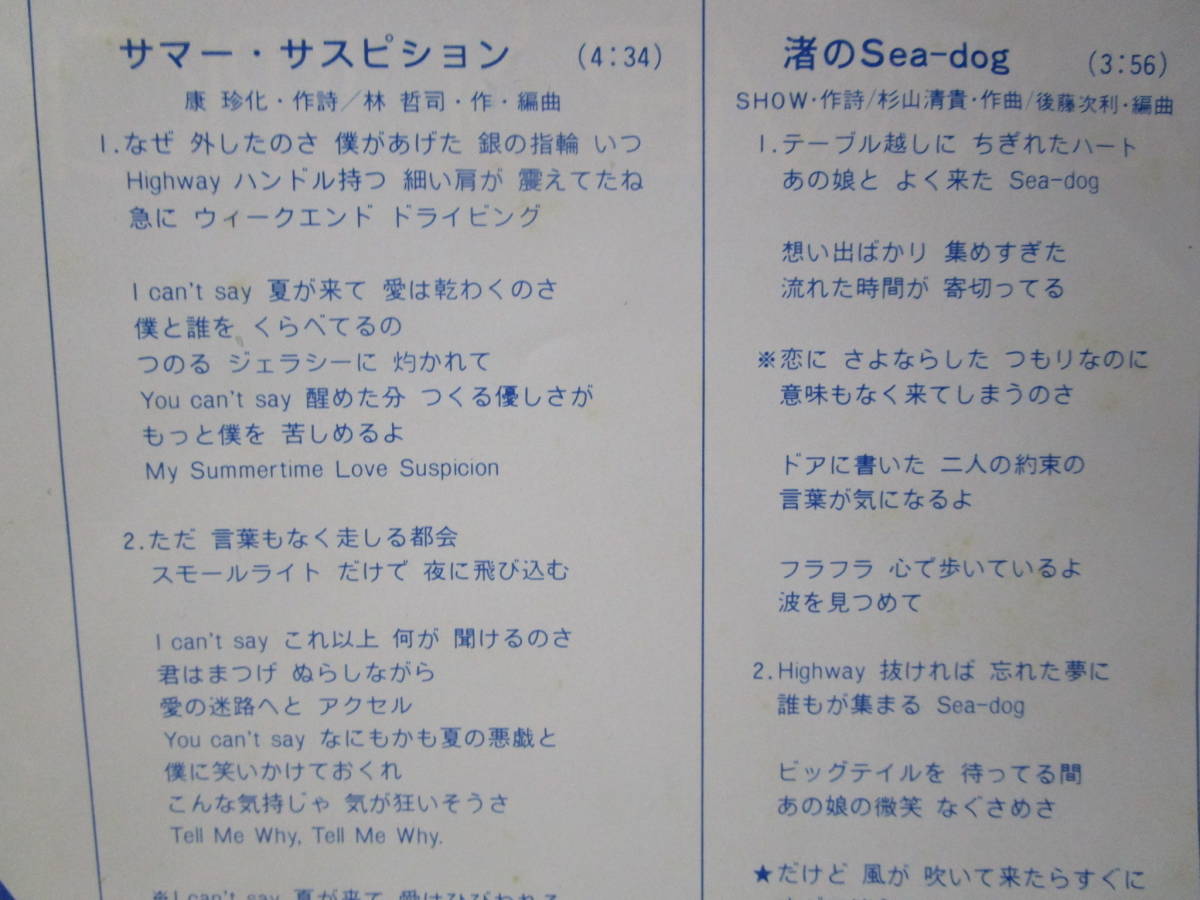 サマー・サスピション (4:34)
康 珍化・作詩/林 哲司・作・編曲
1.なぜ 外したのさ 僕があげた 銀の指輪 いつ
Highway ハンドル持つ 細い肩が 震えてたね
急に ウィークエンド ドライビング
I can't say 夏が来て 愛は乾わくのさ
僕と誰を くらべてるの
つのる ジェラシーに 灼かれて
You can't say 醒めた分 つくる優しさが
もっと僕を 苦しめるよ
My Summertime Love Suspicion
2.ただ 言葉もなく走しる都会
スモールライト だけで 夜に飛び込む
I can't say これ以上 何が 聞けるのさ
君はまつげ ぬらしながら
愛の迷路へと アクセル
You can't say なにもかも夏の悪戯と
僕に笑いかけておくれ
こんな気持じゃ 気が狂いそうさ
Tell Me Why, Tell Me Why.
※I can't say 夏が来て 愛はひびわれる
渚のSea-dog (3:56)
SHOW・作詩/杉山清貴・作曲/後藤次利・編曲
1.テーブル越しに ちぎれたハート
あの娘と よく来た Sea-dog
想い出ばかり 集めすぎた
流れた時間が 寄切ってる
※恋に さよならした つもりなのに
意味もなく来てしまうのさ
ドアに書いた 二人の約束の
言葉が気になるよ
フラフラ 心で歩いているよ
波を見つめて
2.Highway 抜ければ 忘れた夢に
誰もが集まる Sea-dog
ビッグテイルを 待ってる間
あの娘の微笑 なぐさめさ
★だけど 風が 吹いて来たらすぐに